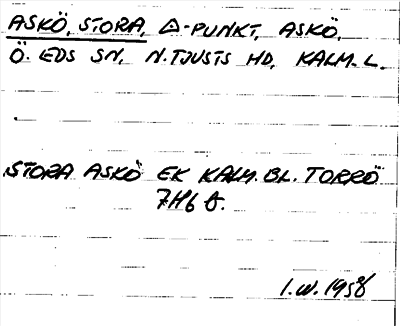 ASKÖ, STORA, △-PUNKT, ASKÖ,
Ö. EDS SN, N. TJUSTS HD, KALM. L.
STORA ASKÖ EK KALM. BL. TORRÖ
7H6
I.W. 1958